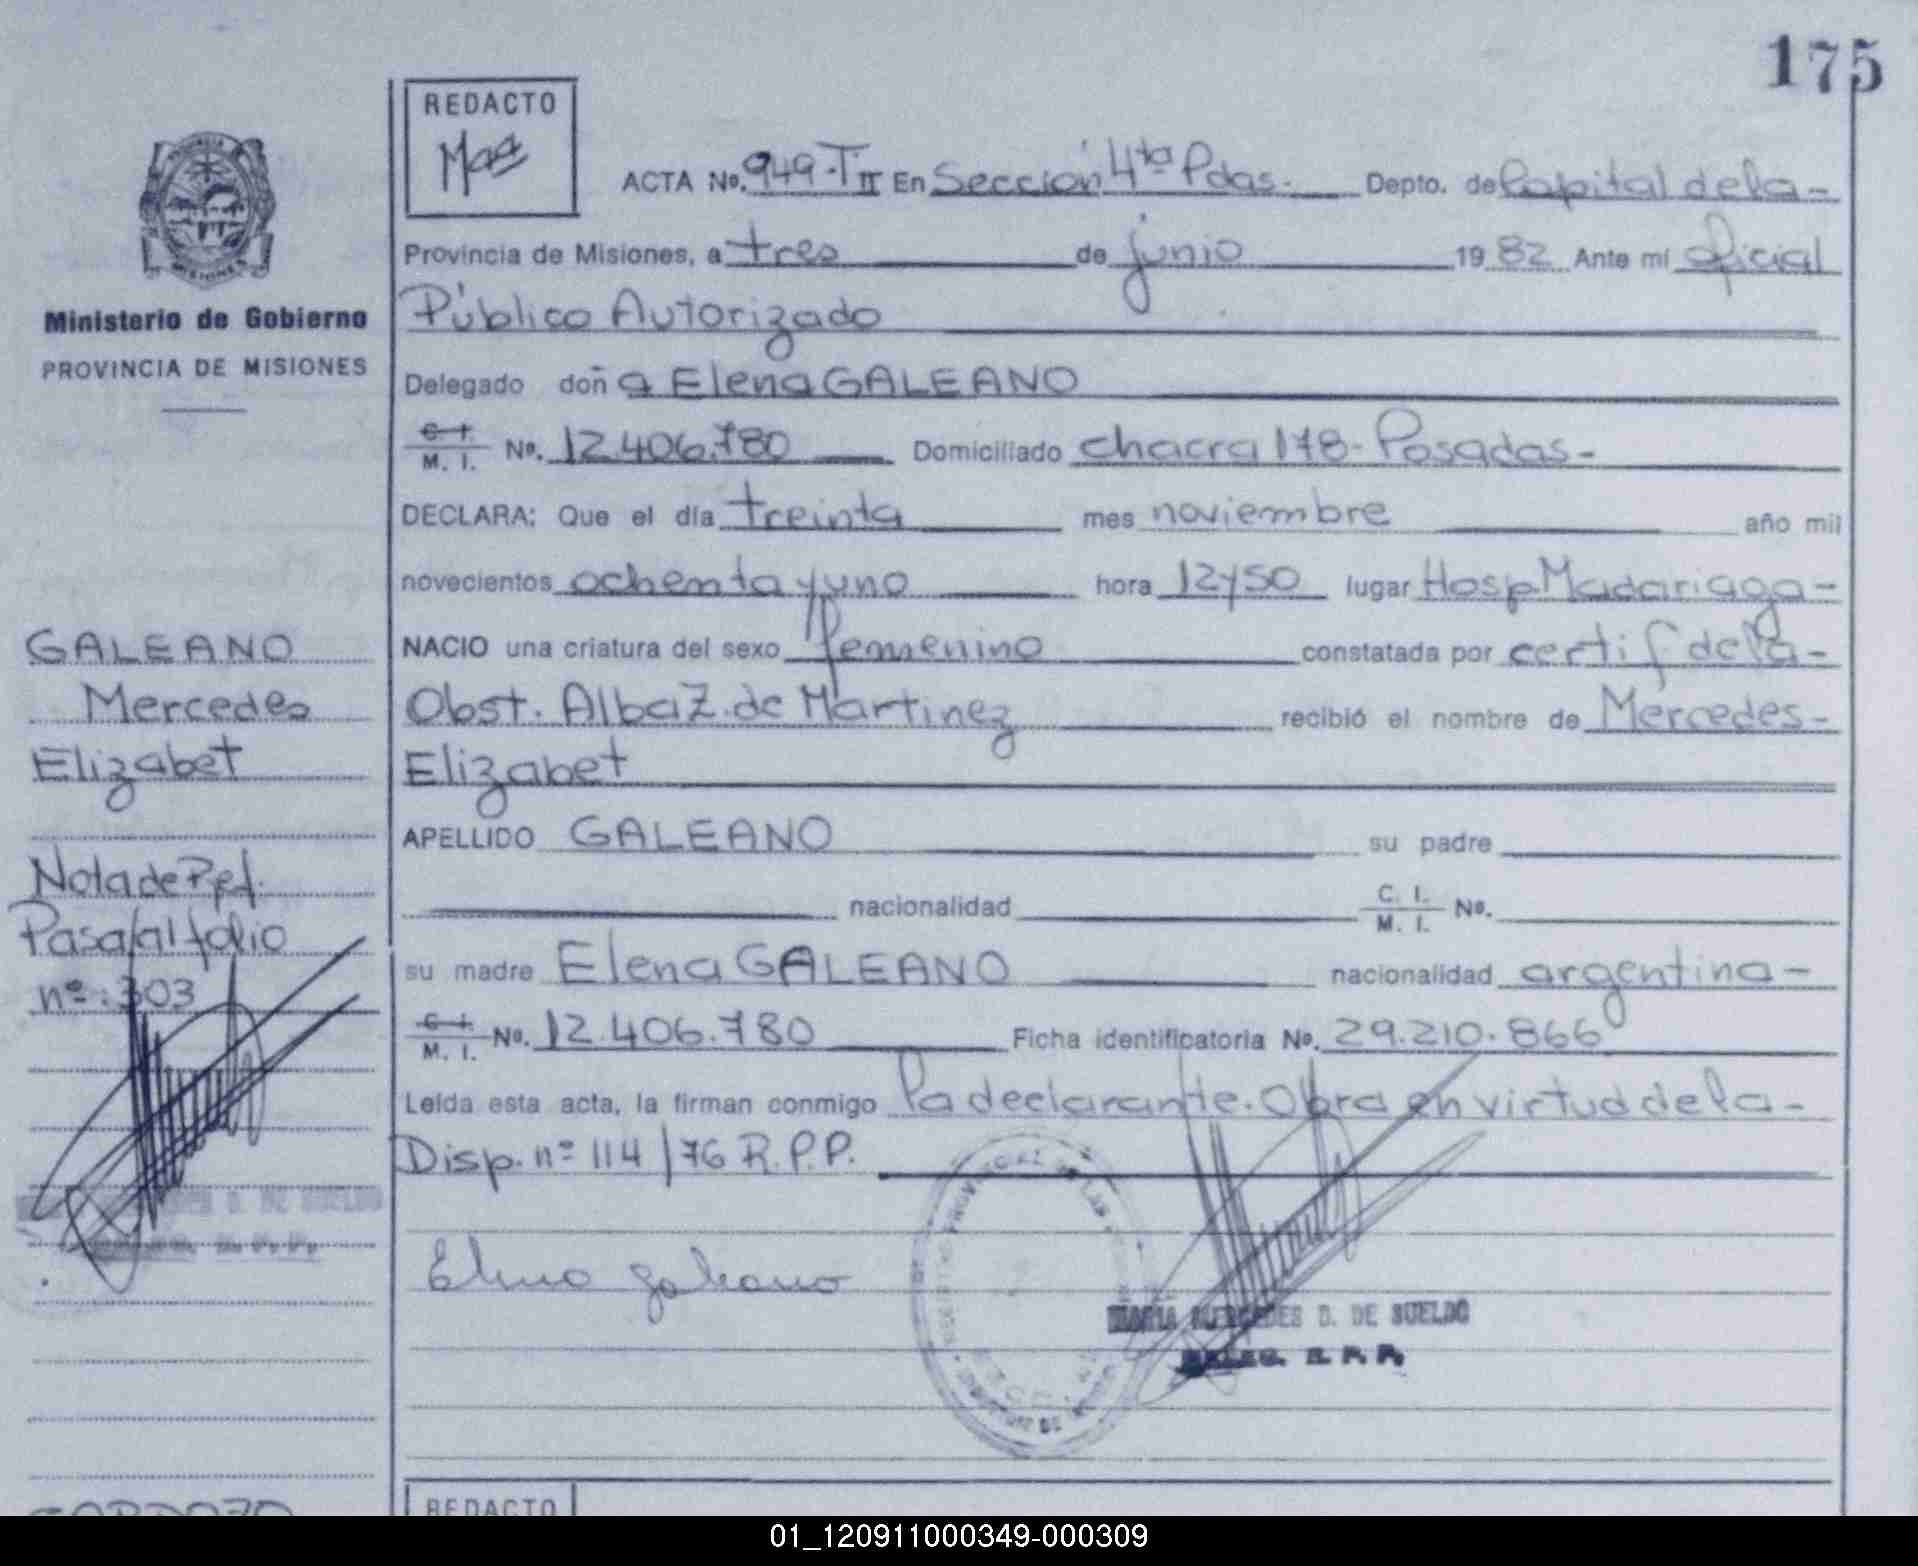 175
REDACTO
ACTA No. 949-T II En Sección 4ta Pdas.- Depto. de Capital de la-
Provincia de Misiones, a tres de junio 1982 Ante mí oficial
Público Autorizado
Delegado doña Elena GALEANO
C. I. / M. I. No. 12.406.780 Domiciliado chacra 178-Posadas-
DECLARA: Que el día treinta mes noviembre año mil
novecientos ochenta y uno hora 12y50 lugar Hosp. Madariaga-
NACIO una criatura del sexo femenino constatada por certif de la-
Obst. Alba Z. de Martinez recibió el nombre de Mercedes-
Elizabet
APELLIDO GALEANO su padre
nacionalidad C. I. / M. I. No.
su madre Elena GALEANO nacionalidad argentina-
C. I. / M. I. No. 12.406.780 Ficha identificatoria No. 29.210.866
Leída esta acta, la firman conmigo la declarante. Obra en virtud de la-
Disp. nº 114/76 R.P.P.
Elena Galeano
MARIA MERCEDES D. DE SUELDO
R. P. P.
MISIONES
Ministerio de Gobierno
PROVINCIA DE MISIONES
GALEANO
Mercedes
Elizabet
Nota de Ref.
Pasa al folio
nº: 303
D. DE SUELDO
R. P. P.
REDACTO
01_120911000349-000309